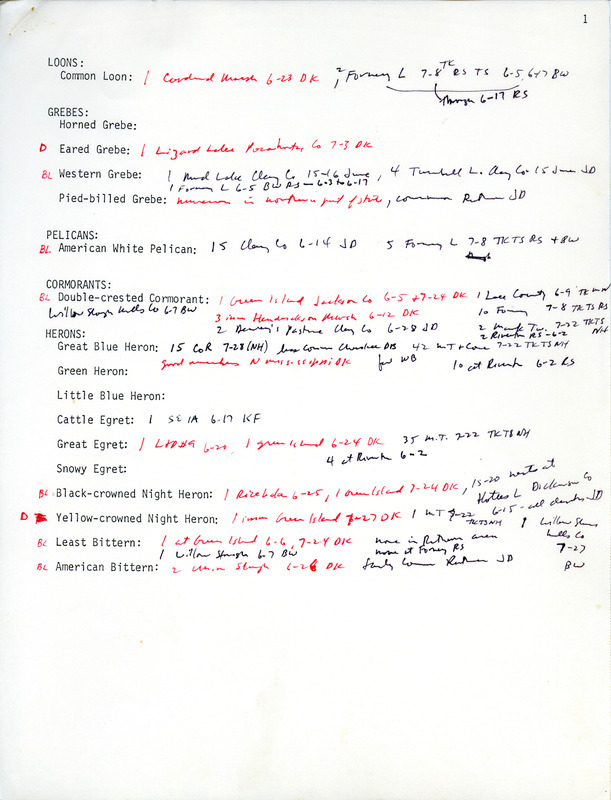 1
LOONS:
Common Loon: 1 Cardinal Marsh 6-23 DK, 2 Forney L 7-8 TK RS TS 6-5, 6+7 BW
through 6-17 RS
GREBES:
Horned Grebe:
D Eared Grebe: 1 Lizard Lake Pocahontas Co 7-3 DK
BL Western Grebe: 1 Mud Lake Clay Co 15-16 June, 4 Trumbull L. Clay Co 15 June JD
1 Forney L 6-5 BW RS - 6-3 to 6-17
Pied-billed Grebe: numerous in northern part of state, common Ruthven JD
PELICANS:
BL American White Pelican: 15 Clay Co 6-14 JD 5 Forney L 7-8 TK TS RS + BW
CORMORANTS:
BL Double-crested Cormorant: 1 Green Island Jackson Co 6-5 +7-24 DK 1 Lee County 6-9
Willow Slough Mills Co 6-7 BW 3 imm Henderickson Marsh 6-12 DK 10 Forney 7-8 TK TS RS
2 Dewey's Pasture Clay Co 6-28 JD 2 Mark Tw. 7-22 TK TS NH
HERONS: 2 Riverton RS-6-2
Great Blue Heron: 15 CoR 7-28 (NH) less common Cherokee DB 42 MT + Cone 7-22 TK TS NH
good numbers N mississippi DK for WB 10 at Riverton 6-2 RS
Green Heron:
Little Blue Heron:
Cattle Egret: 1 SE IA 6-17 KF
Great Egret: 1 LP#9 6-20, 1 green Island 6-24 DK 35 M.T. 7-22 TK TS NH
4 at Riverton 6-2
Snowy Egret:
BL Black-crowned Night Heron: 1 Rice Lake 6-25, 1 Green Island 7-24 DK, 15-20 nests at
Hottes L Dickinson Co
D Yellow-crowned Night Heron: 1 imm Green Island 7-27 DK 1 MT 7-22 TK TS NH 6-15 - all JD
1 Willow Slough Mills Co 7-27 BW
BL Least Bittern: 1 at Green Island 6-6, 7-24 DK none in Ruthven area
1 Willow Slough 6-7 BW none at Forney RS
BL American Bittern: 2 Union Slough 6-26 DK Fairly Common Ruthven JD